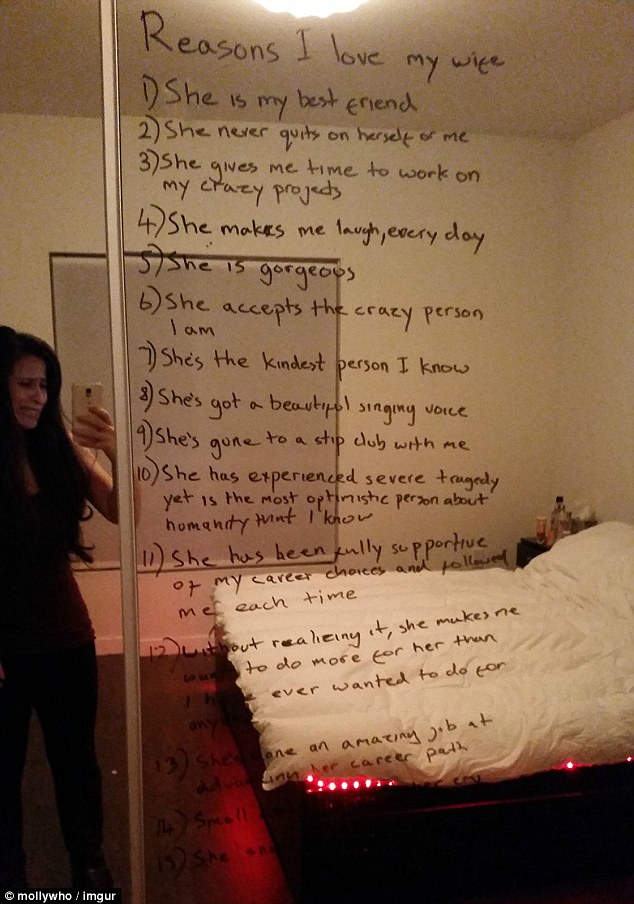 Reasons I love my wife
1) She is my best friend
2) She never quits on herself or me
3) She gives me time to work on
my crazy projects
4) She makes me laugh, every day
5) She is gorgeous
6) She accepts the crazy person
I am
7) She's the kindest person I know
8) She's got a beautiful singing voice
9) She's gone to a stip club with me
10) She has experienced severe tragedy
yet is the most optimistic person about
humanity that I know
11) She has been fully supportive
of my career choices and followed
me each time
12) Without realizing it, she makes me
to do more for her than
I ever wanted to do for
13) She's one an amazing job at
her career path
her cry
14) Small
15) She
© mollywho / imgur